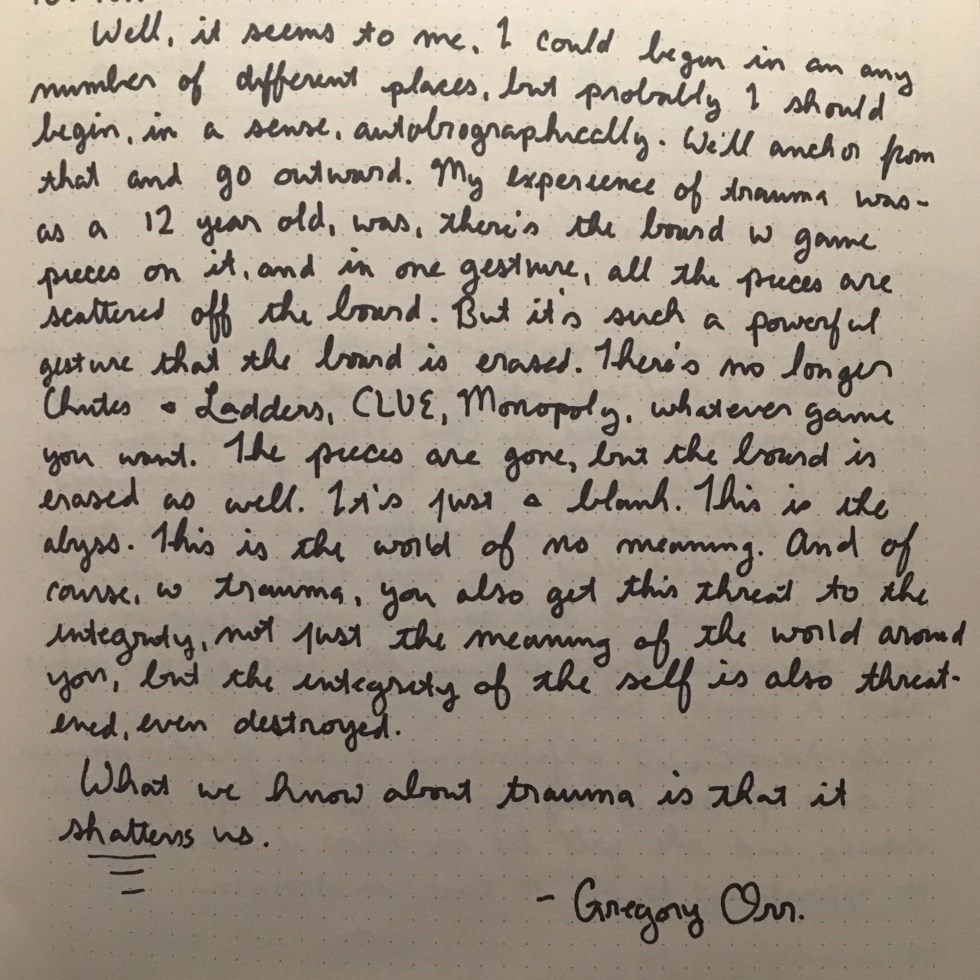 Well, it seems to me, I could begin in an any
number of different places, but probably I should
begin, in a sense, autobiographically. We'll anchor from
that and go outward. My experience of trauma was-
as a 12 year old, was, there's the board w game
pieces on it, and in one gesture, all the pieces are
scattered off the board. But it's such a powerful
gesture that the board is erased. There's no longer
Chutes & Ladders, CLUE, Monopoly, whatever game
you want. The pieces are gone, but the board is
erased as well. It's just a blank. This is the
abyss. This is the world of no meaning. And of
course, w trauma, you also get this threat to the
integrity, not just the meaning of the world around
you, but the integrity of the self is also threat-
ened, even destroyed.
What we know about trauma is that it
shatters us.
- Gregory Orr.